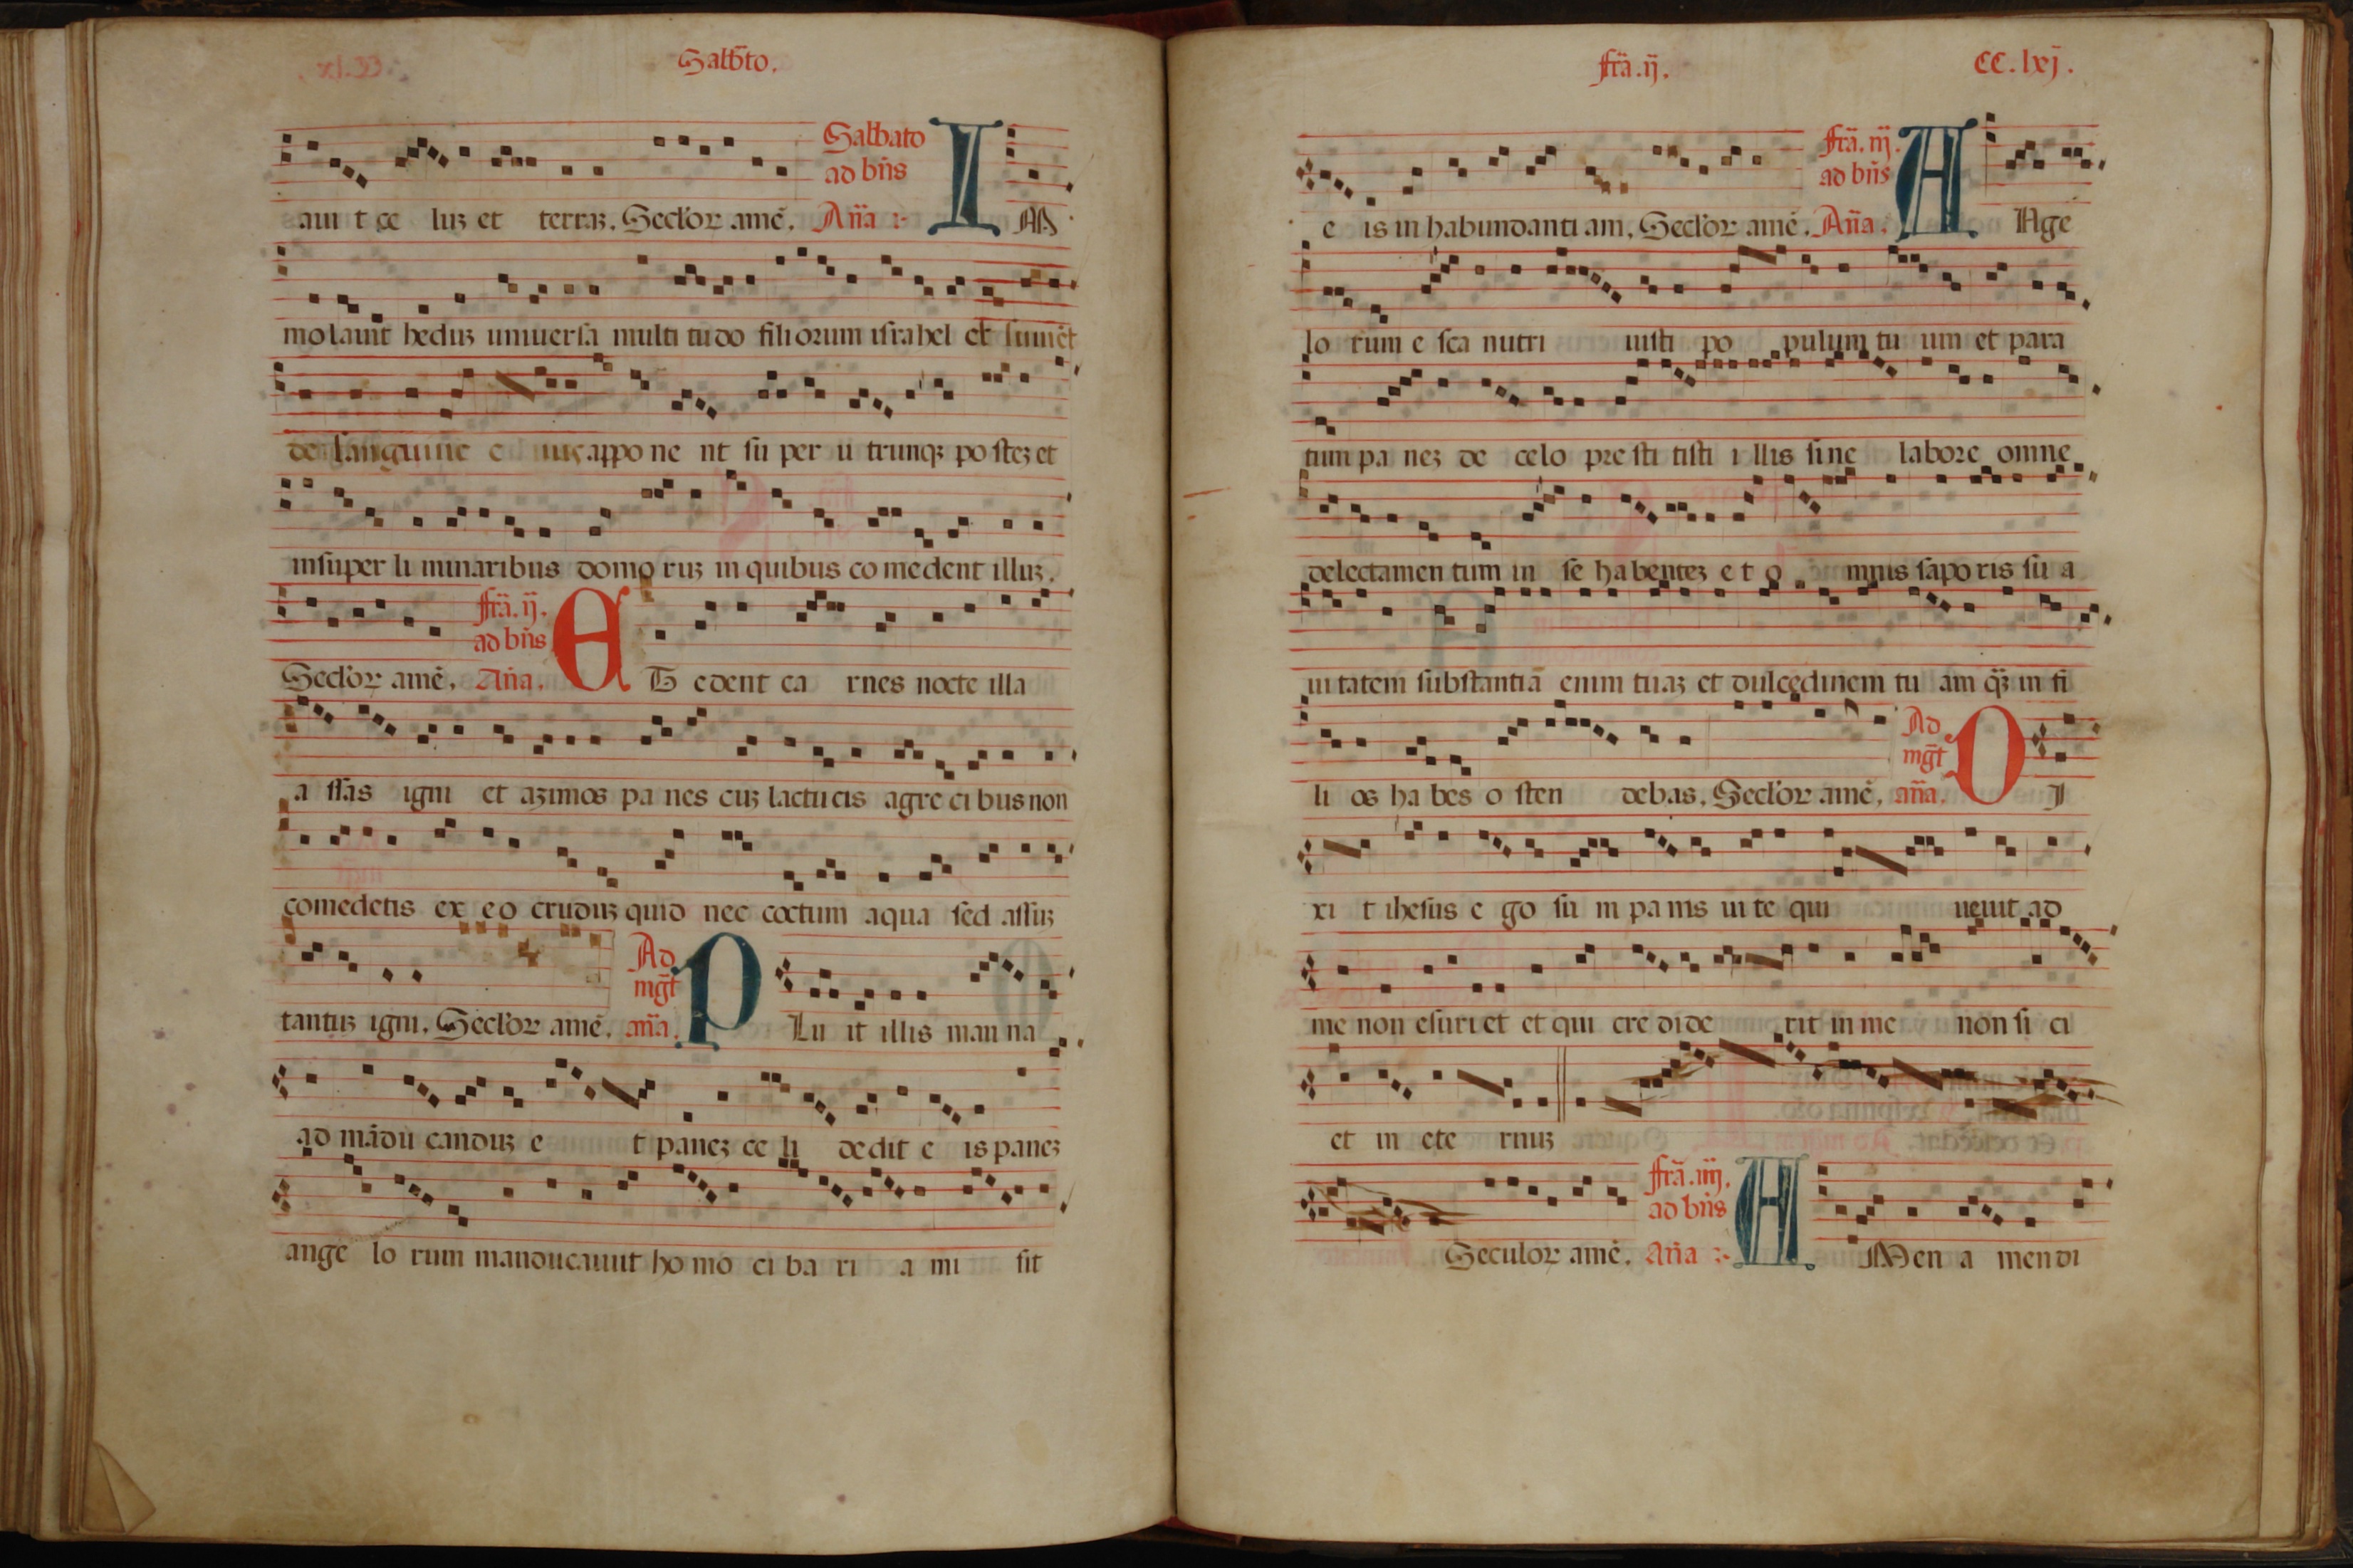 Sabb̄to.
auit ce luꝫ et terraꝫ. Seclʼoꝝ amē. Sabbato ad bn̄s An̄a I M
molauit heduꝫ uniuersa multitudo filiorum israhel et sumēt
de sanguine eius apponent super utrunqꝫ posteꝫ et
insuper liminaribus domoruꝫ in quibus comedent illuꝫ.
Seclʼoꝝ amē. fr̄a. ij. ad bn̄s An̄a. E T edent carnes nocte illa
assas igni et azimos panes cuꝫ lactucis agrecibus non
comedetis ex eo cruduꝫ quid nec coctum aqua sed assuꝫ
tantuꝫ igni. Seclʼoꝝ amē. Ad mḡt an̄a. P Luit illis manna
ad mādu canduꝫ et paneꝫ celi dedit eis paneꝫ
angelorum manducauit homo cibaria misit
fr̄a. ij. CC. lxj.
eis in habundantiam. Seclʼoꝝ amē. fr̄a. iij. ad bn̄s An̄a. A Nge
lorum esca nutriuisti populum tuum et para
tum paneꝫ de celo prestitisti illis sine labore omne
delectamentum in se habenteꝫ et omnis saporis sua
uitatem substantiā enim tuaꝫ et dulcedinem tuam qꝫ in fi
lios habes ostendebas. Seclʼoꝝ amē. Ad mḡt an̄a. D I
xit ihesus ego sum panis uite qui uenit ad
me non esuriet et qui crediderit in me non sici
et in eternuꝫ
Seculoꝝ amē. fr̄a. iiij. ad bn̄s An̄a A Men amen di